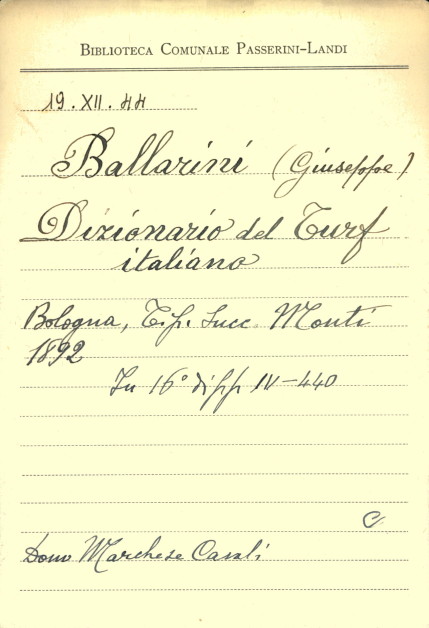 BIBLIOTECA COMUNALE PASSERINI-LANDI
19.XII.44
Ballarini (Giuseppe)
Dizionario del Turf
italiano
Bologna, Tip. Succ. Monti
1892
In 16° di pp IV-440
C
Dono Marchese Casali